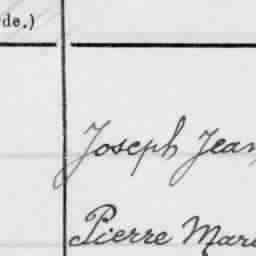 de.)
Joseph Jean
Pierre Mari